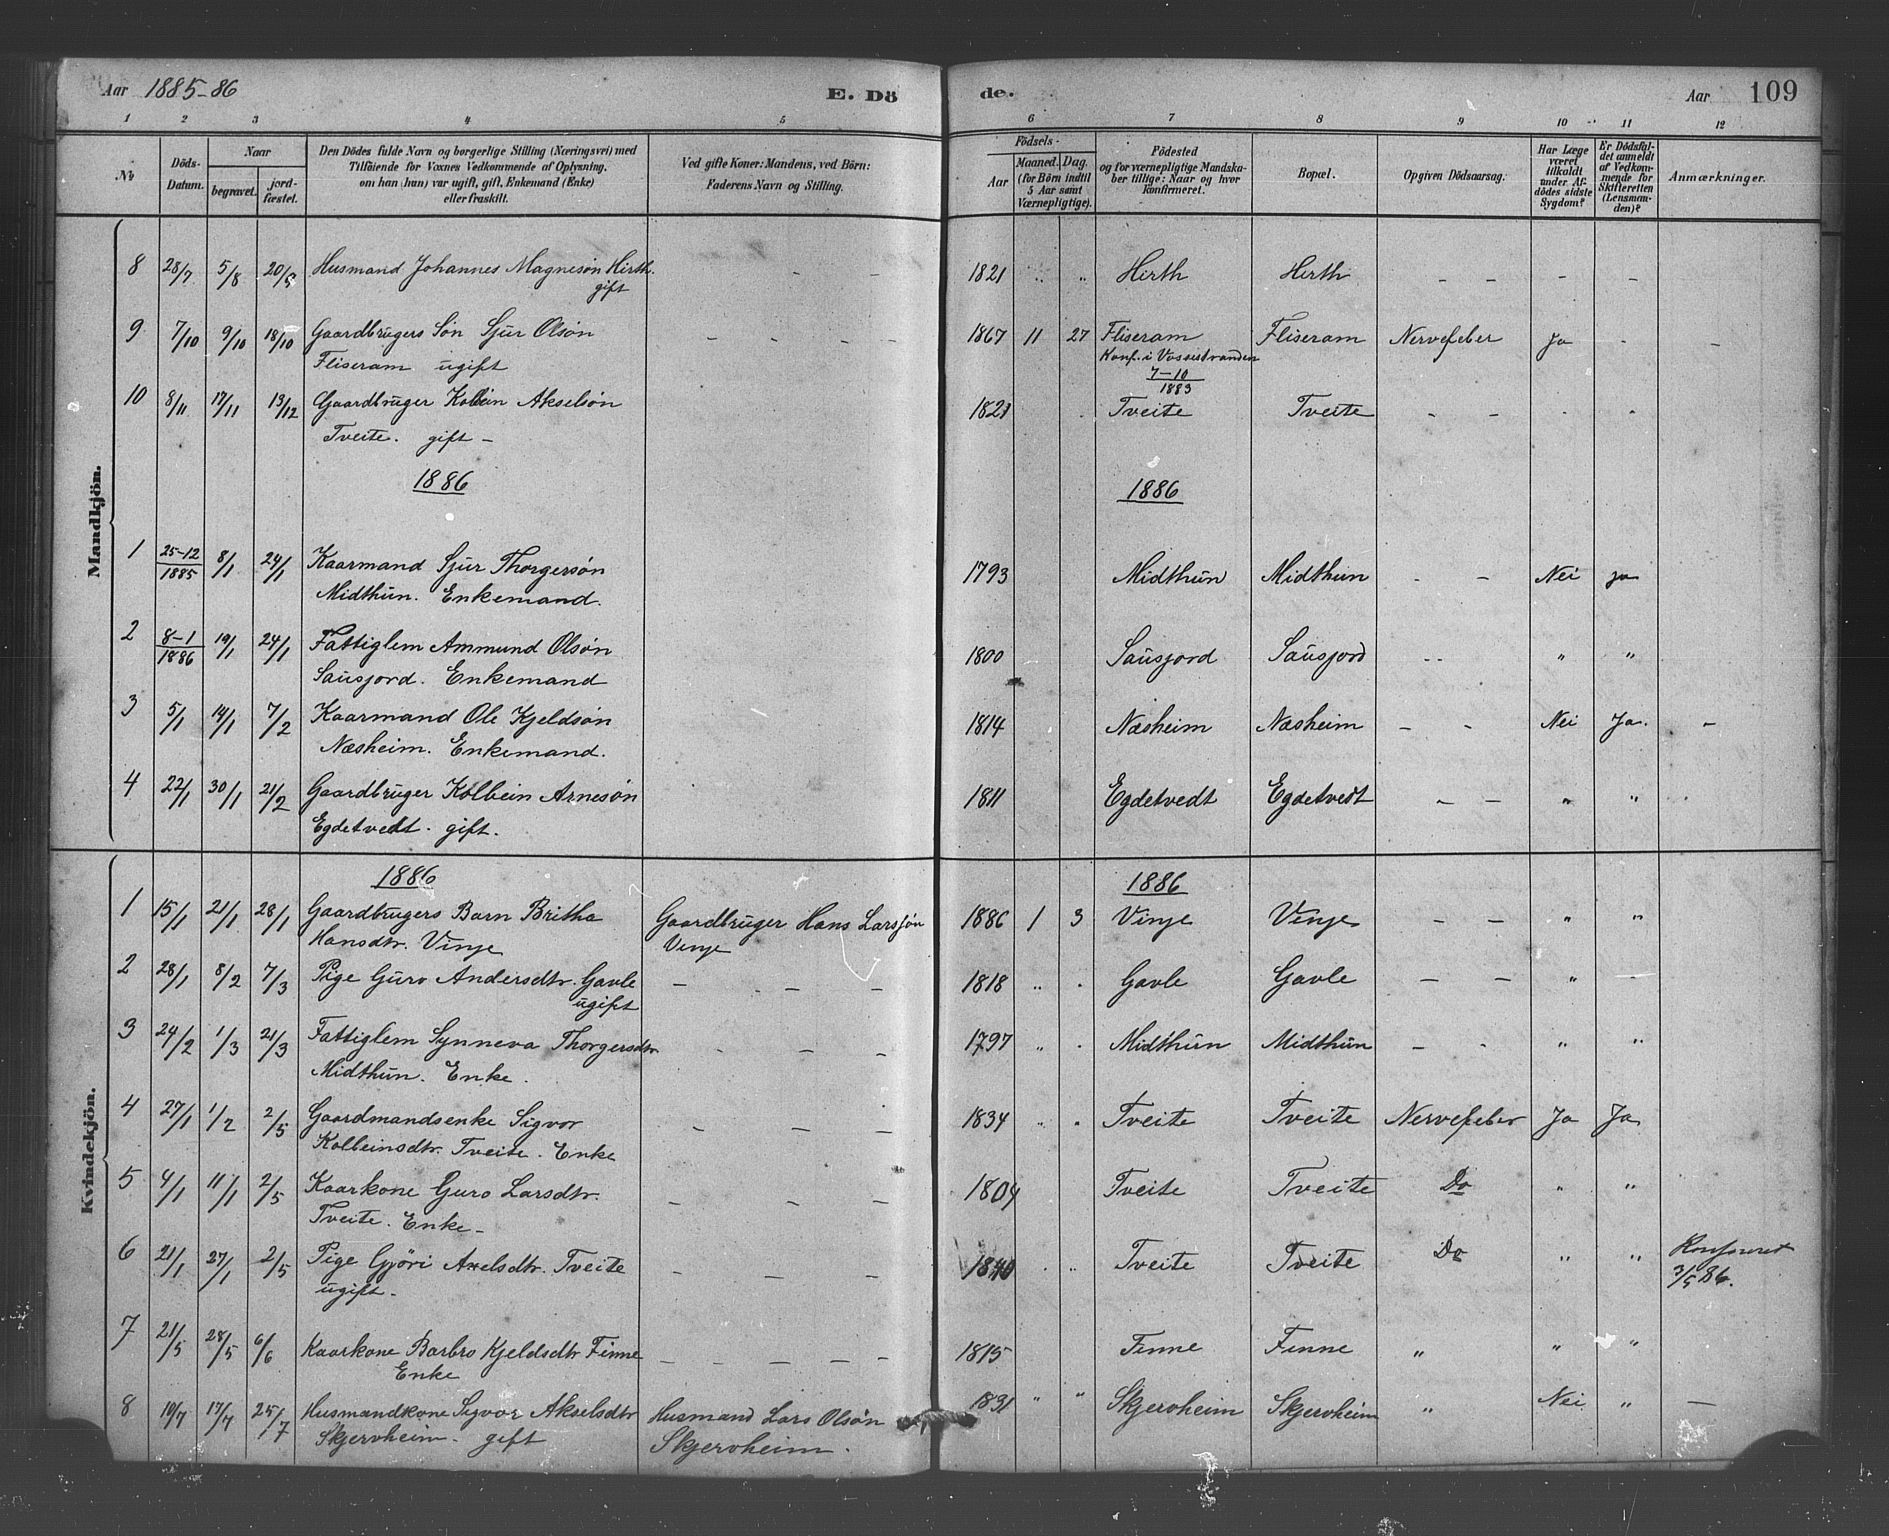 Aar 1885-86 E. Dö de. Aar 109
1 2 3 4 5 6 7 8 9 10 11 12
No
Döds-Datum.
Naar
begravet.
jordfæstet.
Den Dödes fulde Navn og borgerlige Stilling (Næringsvei) med
Tilföiende for Voxnes Vedkommende af Oplysning,
om han (hun) var ugift, gift, Enkemand (Enke)
eller fraskilt.
Ved gifte Koner: Mandens, ved Börn:
Faderens Navn og Stilling.
Födsels-
Aar
Maaned. Dag.
(for Börn indtil
5 Aar samt
Værnepligtige).
Födested
og for værnepligtige Mandska-
ber tillige: Naar og hvor
Konfirmeret.
Bopæl.
Opgiven Dödsaarsag.
Har Læge
været
tilkaldt
under Af-
dödes sidste
Sygdom?
Er Dödsfal-
det anmeldt
af Vedkom-
mende for
Skifteretten
(Lensman-
den)?
Anmærkninger.
Mandkjön.
8 28/7 5/8 20/9 Husmand Johannes Magnesøn Hirth. - - 1821 " " Hirth Hirth - - - -
gift
9 7/10 9/10 18/10 Gaardbrugers Søn Sjur Olsøn - - - - 1867 11 27 Fliseram Fliseram Nervefeber Ja - -
Fliseram ugift Konf. i Vossestranden
7-10
1883
10 8/11 17/11 13/12 Gaardbruger Kolbein Akselsøn 1821 Tveite Tveite - - - -
Tveite. gift -
1886 1886
1 25-12/1885 8/1 24/1 Kaarmand Sjur Thorgersøn 1793 Midthun Midthun - - Nei ja
Midthun. Enkemand.
2 8-1/1886 19/1 24/1 Fattiglem Ammund Olsøn 1800 Sausjord Sausjord - - " "
Sausjord. Enkemand
3 5/1 14/1 7/2 Kaarmand Ole Kjeldsøn 1814 Næsheim Næsheim - - Nei Ja. -
Næsheim. Enkemand.
4 22/1 30/1 21/2 Gaardbruger Kolbein Arnesøn 1811 Egdetvedt Egdetvedt - - " "
Egdetvedt. gift.
Kvindekjön.
1886 1886
1 15/1 21/1 28/1 Gaardbrugers Barn Britha Gaardbruger Hans Larssøn 1886 1 3 Vinje Vinje - - " "
Hansdtr. Vinje Vinje
2 28/1 8/2 7/3 Pige Guro Andersdtr. Gavle - - - 1818 " " Gavle Gavle - - " -
ugift
3 24/2 1/3 21/3 Fattiglem Synneva Thorgersdtr - - - 1797 " " Midthun Midthun - - " "
Midthun. Enke.
4 27/1 1/2 2/5 Gaardmandsenke Sigvor - - - 1834 " " Tveite Tveite Nervefeber Ja Ja
Kolbeinsdtr. Tveite. Enke
5 4/1 11/1 2/5 Kaarkone Guro Larsdtr. - - - 1804 Tveite Tveite Do " "
Tveite. Enke -
6 21/1 27/1 2/5 Pige Gjøri Axelsdtr. Tveite - - - 1840 " " Tveite Tveite Do " "
ugift - 3/5 86.
7 21/5 28/5 6/6 Kaarkone Barbro Kjeldsdtr Finne - - - - - 1815 Finne Finne " " "
Enke
8 10/7 17/7 25/7 Husmandkone Sigvor Akselsdtr Husmand Lars Olsøn 1831 " " Skjervheim Skjervheim " Nei " -
Skjervheim. gift Skjervheim.